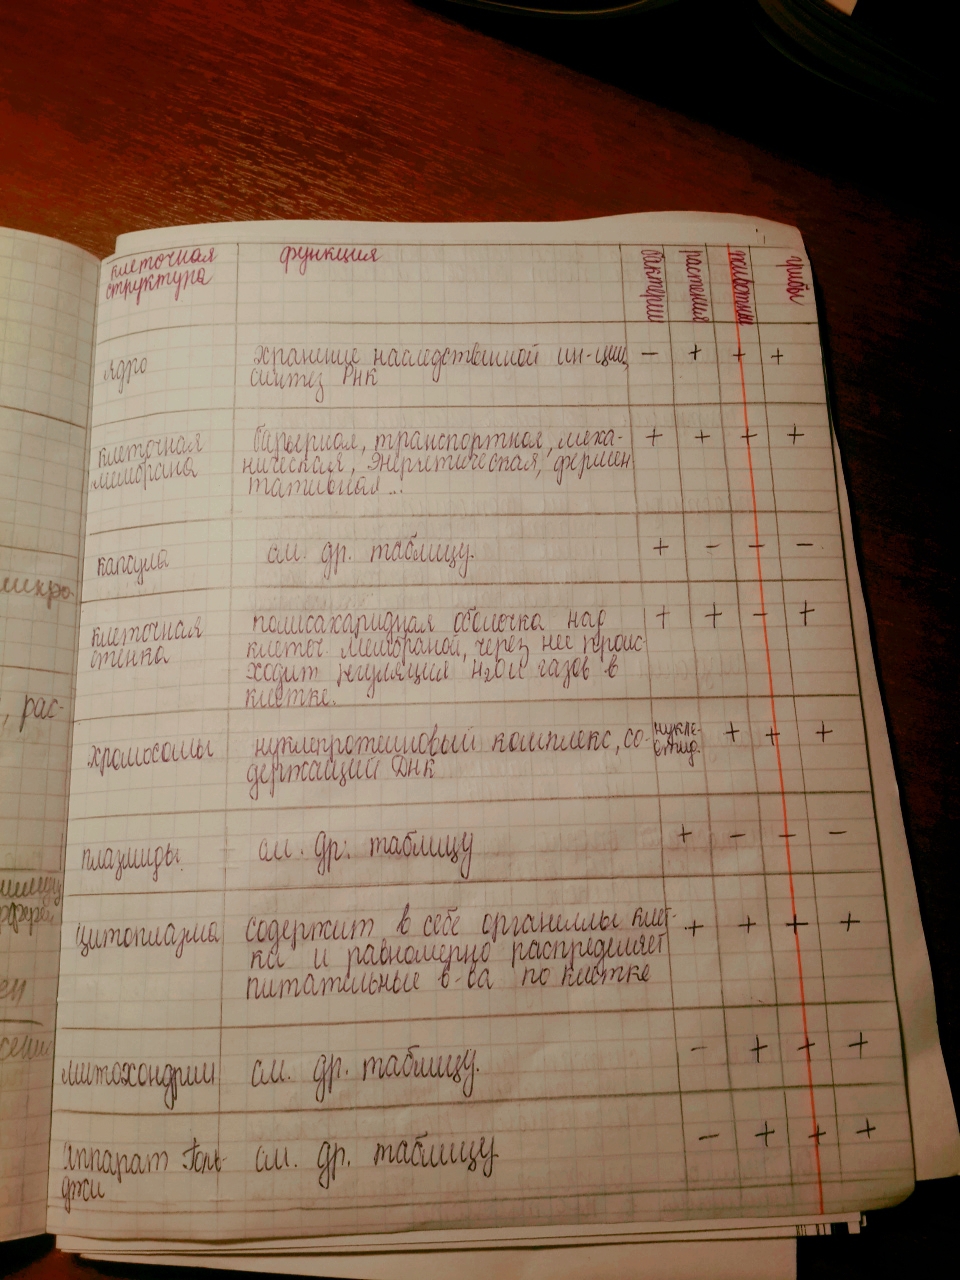 клеточная
структура
функция
бактерии
растения
животные
грибы
ядро
хранение наследственной ин-ции,
синтез РНК
- + + +
клеточная
мембрана
барьерная, транспортная, меха-
ническая, энергетическая, фермен
тативная...
+ + + +
капсула
см. др. таблицу.
+ - - -
клеточная
стенка
полисахаридная оболочка над
клеточ. мембраной, через неё проис-
ходит регуляция H2O и газов в
клетке.
+ + - +
хромосомы
нуклепротеиновый комплекс, со-
держащий ДНК
нукле-
отид.
+ + +
плазмиды
см. др. таблицу
+ - - -
цитоплазма
содержит в себе органеллы клет-
ки и равномерно распределяет
питательные в-ва по клетке
+ + + +
митохондрии
см. др. таблицу.
- + + +
аппарат Голь-
джи
см. др. таблицу.
- + + +
микро-
, рас-